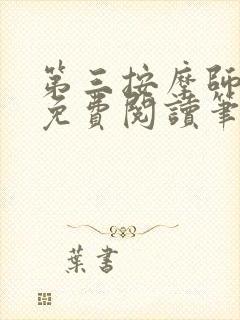 第三按摩師
免費閱讀筆
葉書